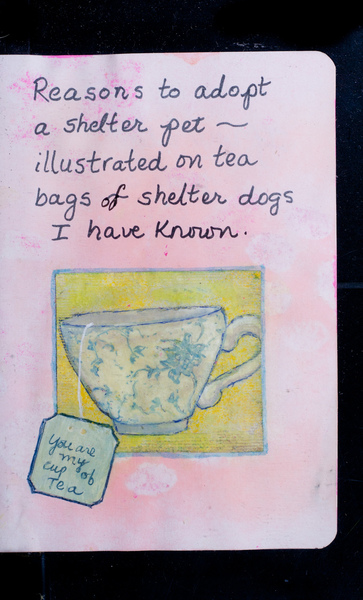 Reasons to adopt
a shelter pet ~
illustrated on tea
bags of shelter dogs
I have known.
you are
my
cup of
Tea